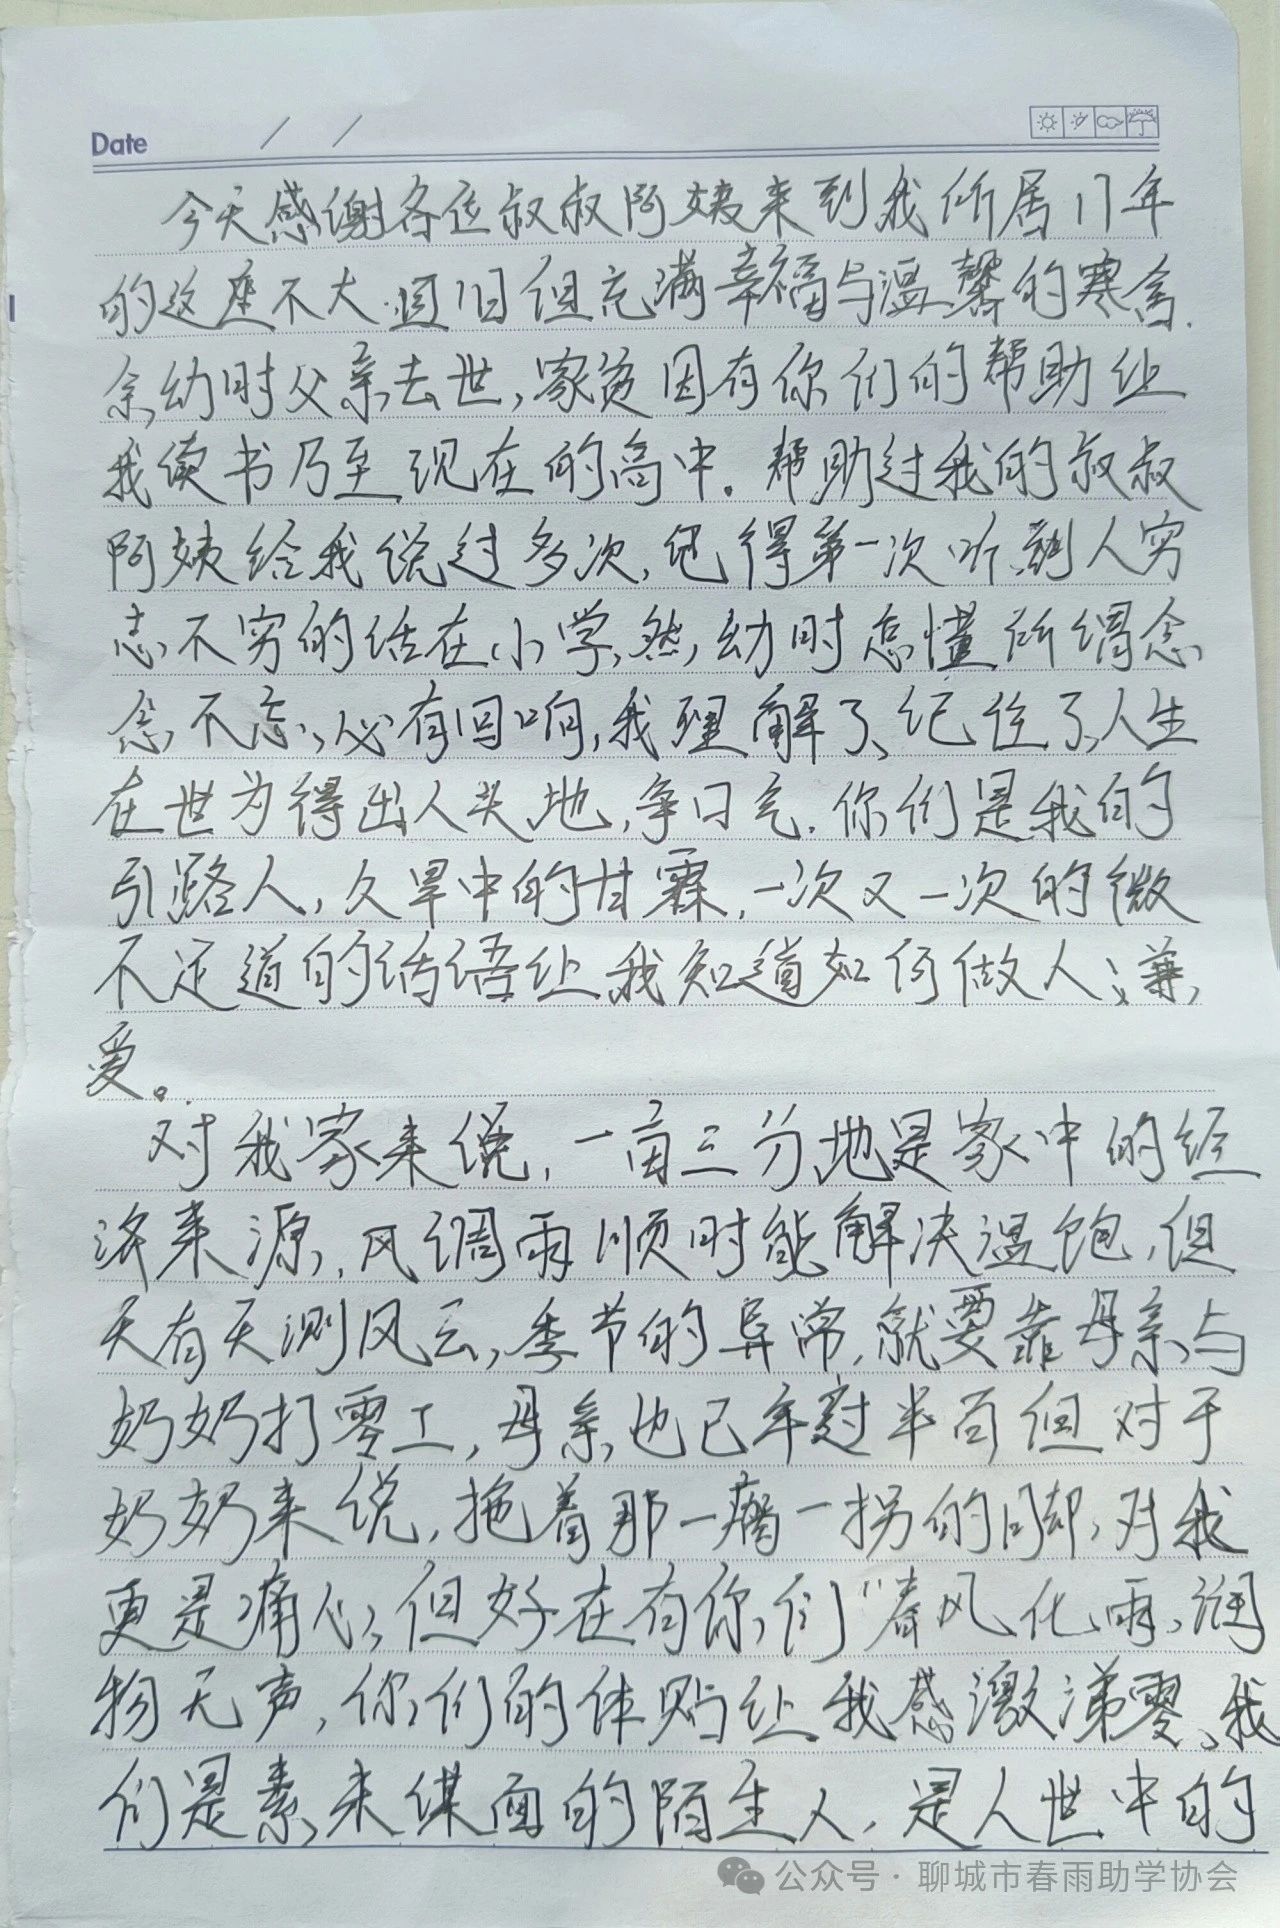 Date / /
今天感谢各位叔叔阿姨来到我所居17年
的这座不大.迥旧但充满幸福与温馨的寒舍.
余幼时父亲去世,家贫因有你们的帮助让
我读书乃至现在的高中。帮助过我的叔叔
阿姨给我说过多次,记得第一次听到人穷
志不穷的话在小学,然,幼时怎懂所谓念
念不忘,必有回响,我理解了、纪住了,人生
在世为得出人头地,争口气.你们是我的
引路人,久旱中的甘霖,一次又一次的微
不足道的话语让我知道如何做人;兼,
爱。
对我家来说,一亩三分地是家中的经
济来源,风调雨顺时能解决温饱,但
天有天测风云,季节的异常,就要靠母亲与
奶奶打零工,母亲也已年过半百但对于
奶奶来说,拖着那一瘸一拐的脚,对我
更是痛心,但好在有你们“春风化雨,润
物无声,你们的体贴让我感激涕零,我
们是素未谋面的陌生人,是人世中的
公众号·聊城市春雨助学协会